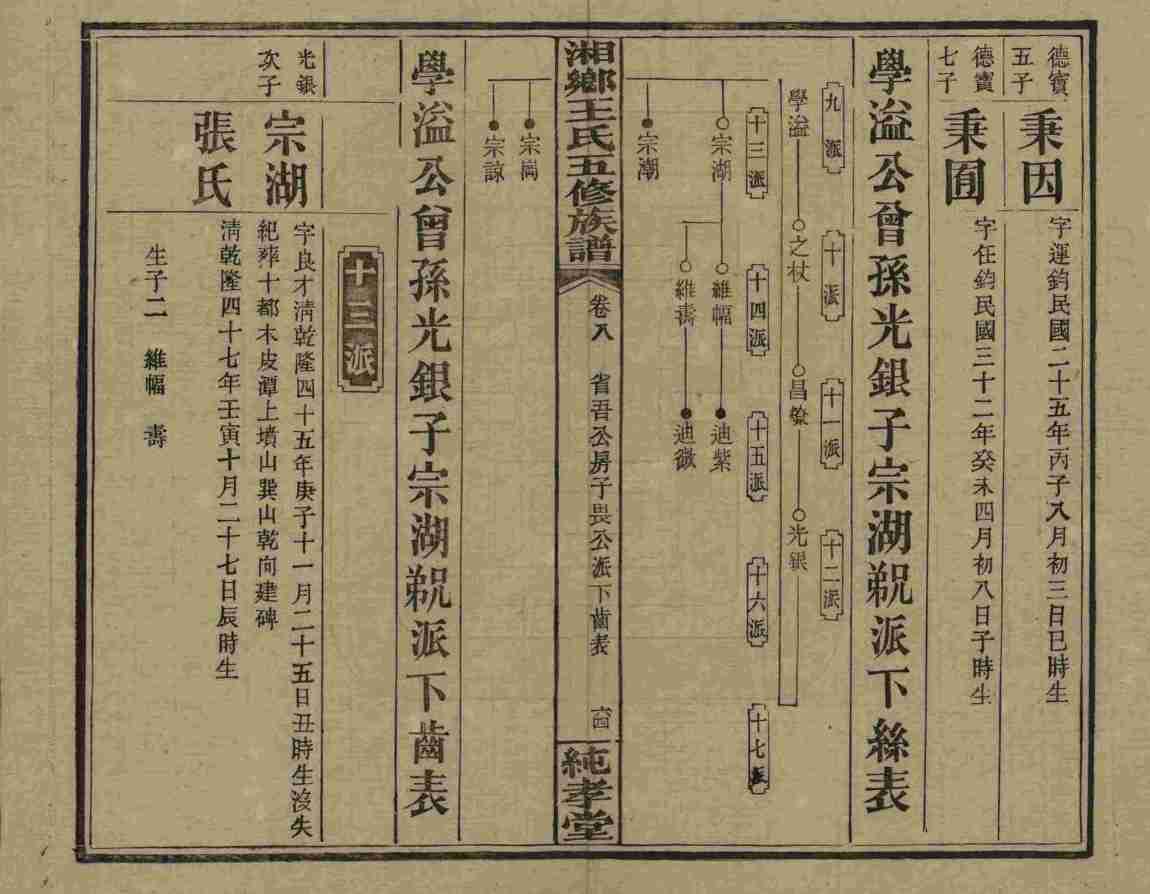 德寶
五子
秉因
字運鈞民國二十五年丙子八月初三日巳時生
德寶
七子
秉囿
字任鈞民國三十二年癸未四月初八日子時生
學溢公曾孫光銀子宗湖覡派下絲表
九派
十派
十一派
十二派
學溢
之杖
昌燎
光銀
十三派
十四派
十五派
十六派
十七派
宗湖
維幅
迪紫
維壽
迪微
宗潮
宗崗
宗諒
湘鄉王氏五修族譜
卷八
省吾公房子畏公派下齒表
六四
純孝堂
學溢公曾孫光銀子宗湖覡派下齒表
十三派
光銀
次子
宗湖
字良才清乾隆四十五年庚子十一月二十五日丑時生沒失
紀葬十都木皮潭上墳山巽山乾向建碑
張氏
清乾隆四十七年壬寅十月二十七日辰時生
生子二 維幅 壽